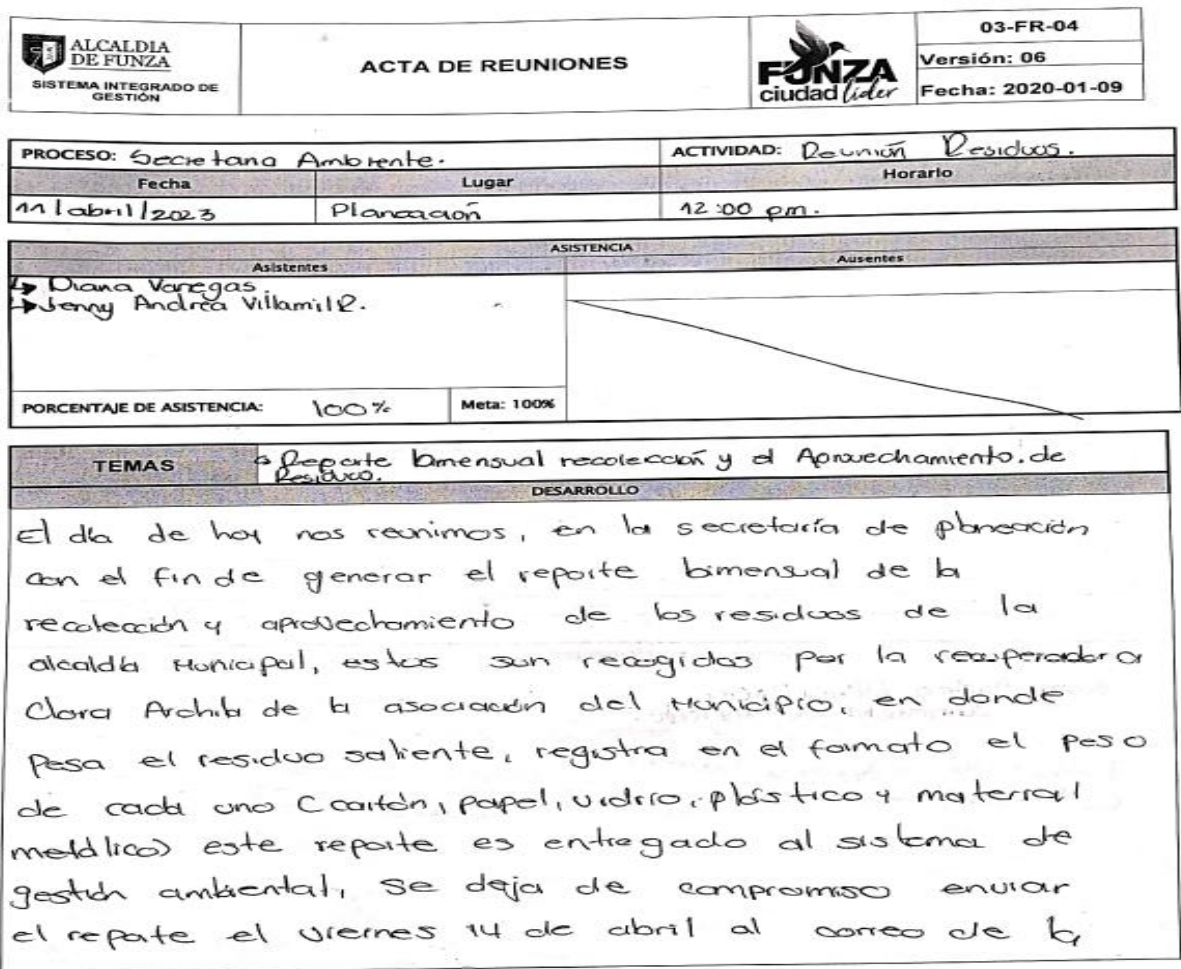 ALCALDIA
DE FUNZA
SISTEMA INTEGRADO DE
GESTIÓN
ACTA DE REUNIONES
FUNZA
ciudad líder
03-FR-04
Versión: 06
Fecha: 2020-01-09
PROCESO: Secretaria Ambiente.
ACTIVIDAD: Reunión Residuos.
Fecha Lugar Horario
11/abril/2023 Planeación 12:00 pm.
ASISTENCIA
Asistentes Ausentes
Diana Vanegas
Jenny Andrea Villamil R.
PORCENTAJE DE ASISTENCIA: 100% Meta: 100%
TEMAS Reporte bimensual recolección y el Aprovechamiento. de
Residuo.
DESARROLLO
El día de hoy nos reunimos, en la secretaría de planeación
con el fin de generar el reporte bimensual de la
recolección y aprovechamiento de los residuos de la
alcaldía Municipal, estos son recogidos por la recuperadora
Clara Archila de la asociación del Municipio, en donde
pesa el residuo saliente, registra en el formato el peso
de cada uno (cartón, papel, vidrio, plástico y material
metálico) este reporte es entregado al sistema de
gestión ambiental, se deja de compromiso enviar
el reporte el viernes 14 de abril al correo de la